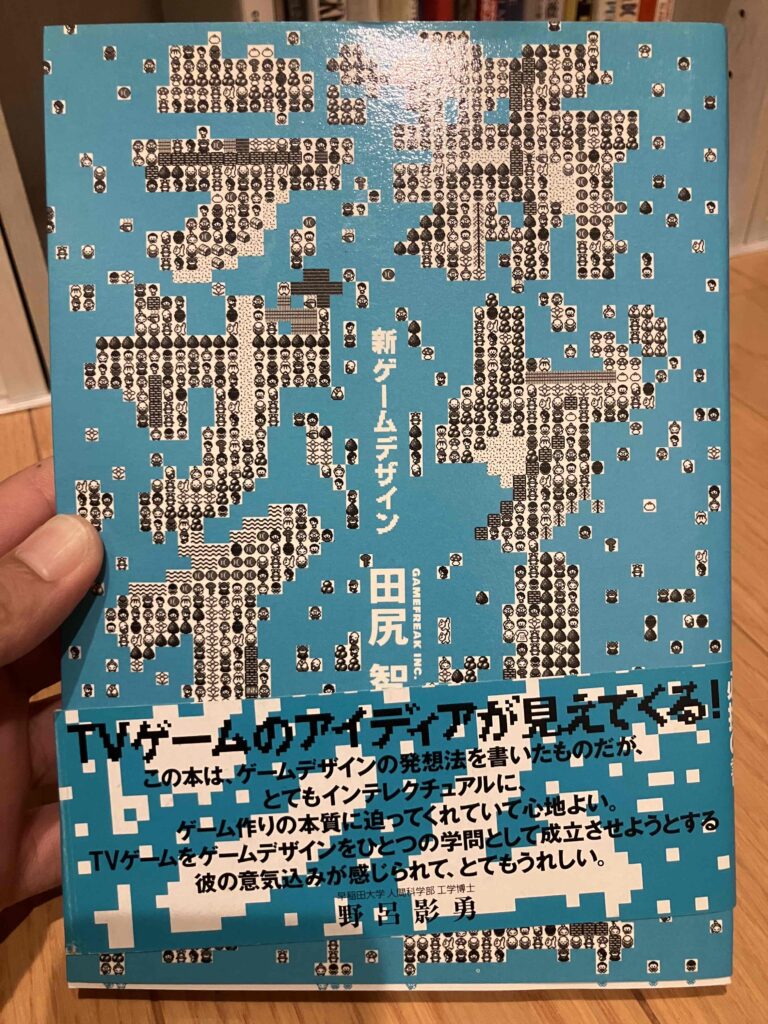 新ゲームデザイン
田尻 智
GAMEFREAK INC.
TVゲームのアイディアが見えてくる!
この本は、ゲームデザインの発想法を書いたものだが、
とてもインテレクチュアルに、
ゲーム作りの本質に迫ってくれていて心地よい。
TVゲームをゲームデザインをひとつの学問として成立させようとする
彼の意気込みが感じられて、とてもうれしい。
早稲田大学 人間科学部 工学博士
野呂影勇